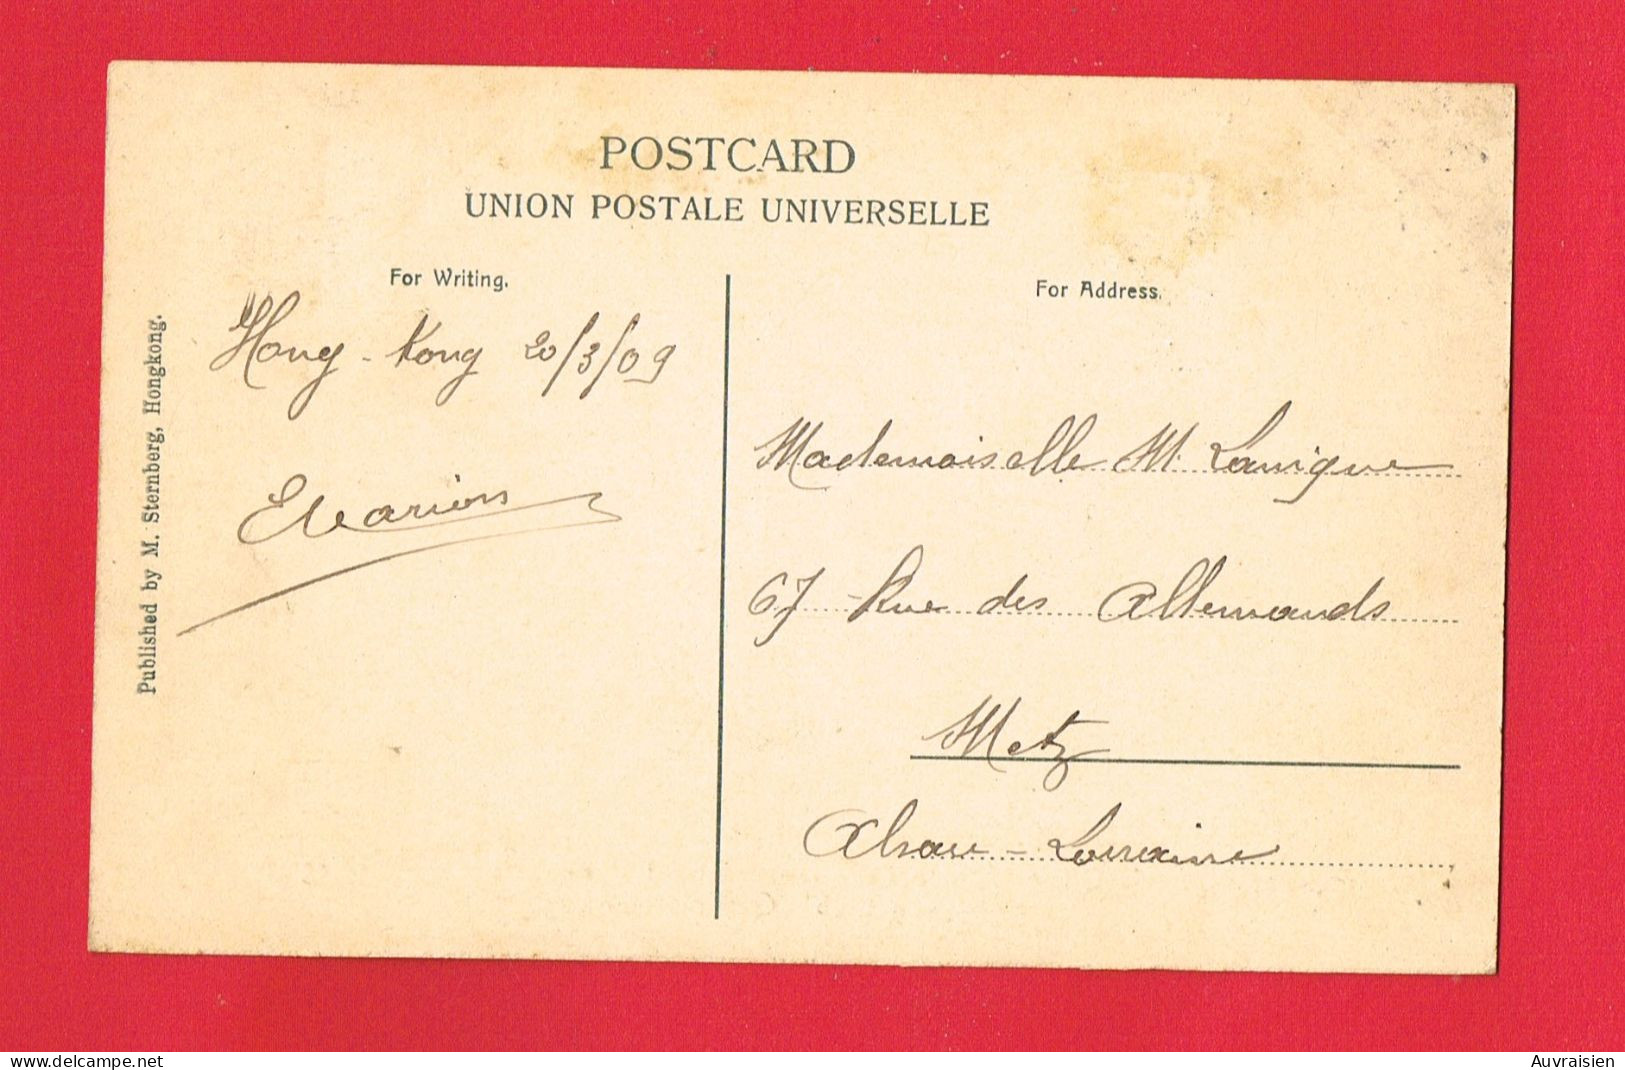 POSTCARD
UNION POSTALE UNIVERSELLE
For Writing.
For Address.
Published by M. Sternberg, Hongkong.
Hong-Kong 20/3/09
Mademoiselle M. Lanique
67 Rue des Allemands
Metz
Alsace-Lorraine
www.delcampe.net
Auvraisien